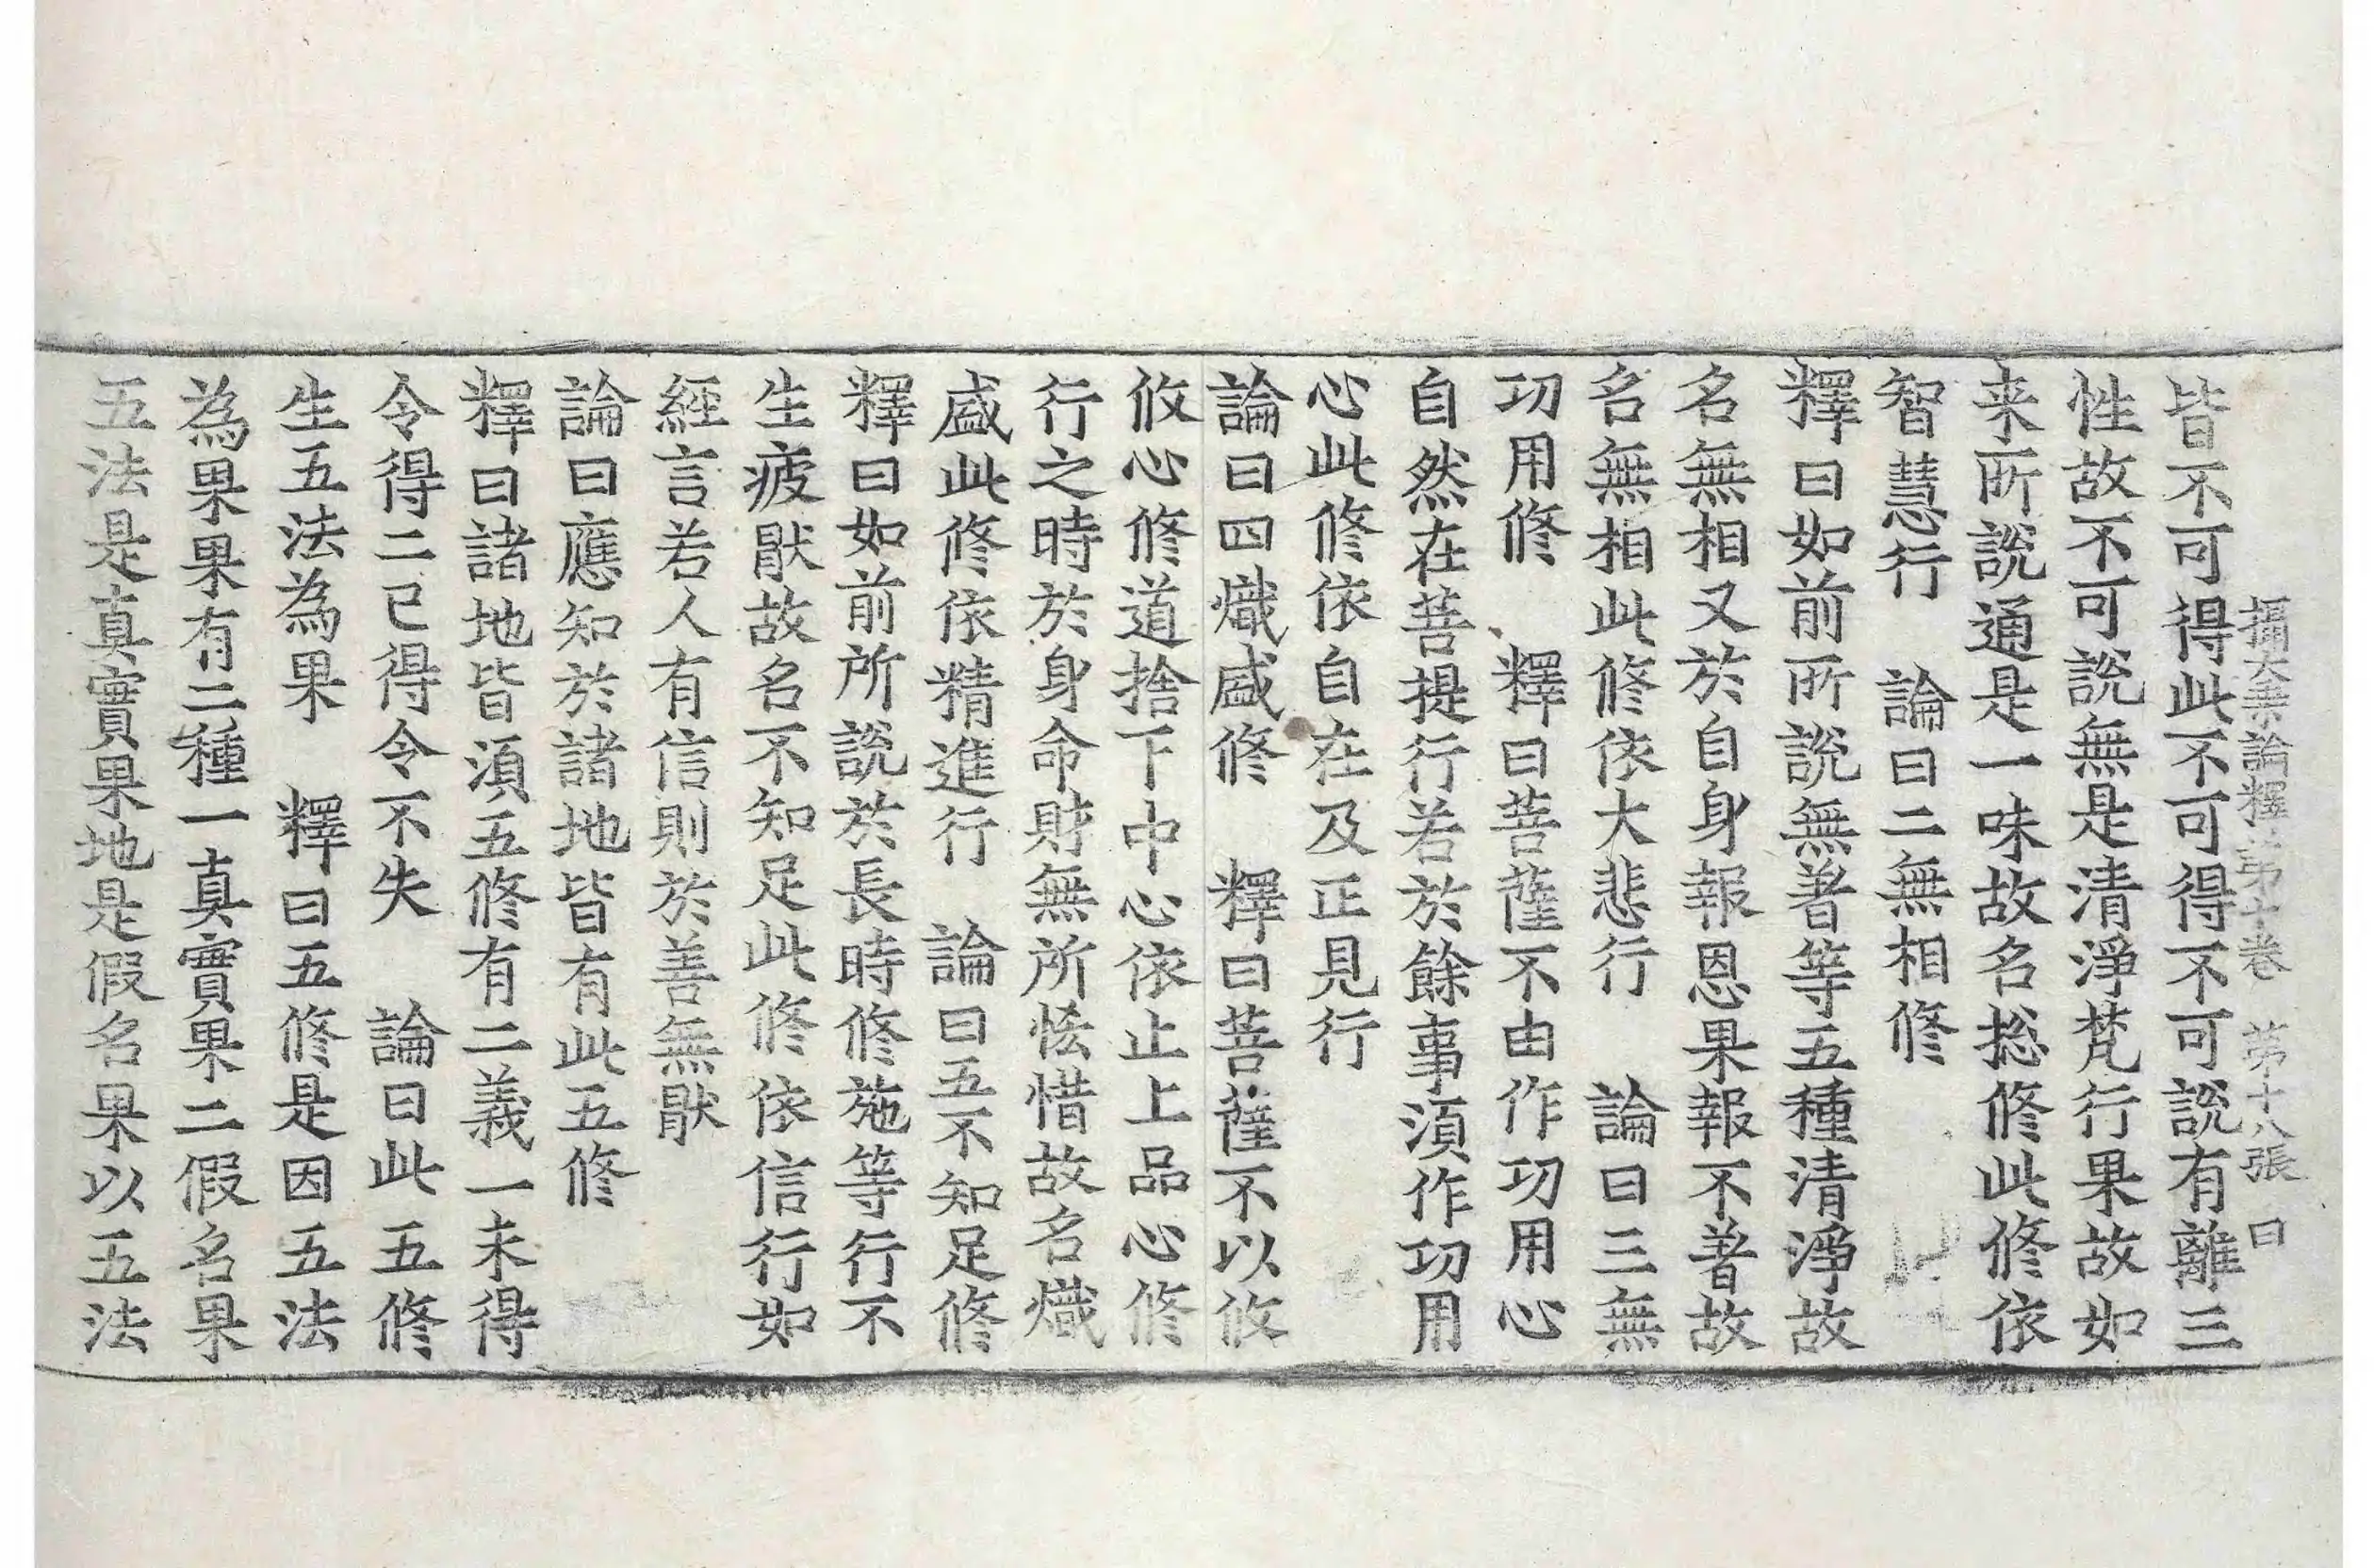 攝大乘論釋第十卷　第十八張　曰
皆不可得此不可得不可說有離三
性故不可說無是清淨梵行果故如
来所說通是一味故名捴修此修依
智慧行　論曰二無相修
釋曰如前所說無著等五種清淨故
名無相又於自身報恩果報不著故
名無相此修依大悲行　論曰三無
功用修　釋曰菩薩不由作功用心
自然在菩提行若於餘事湏作功用
心此修依自在及正見行
論曰四熾盛修　釋曰菩薩不以攸
攸心修道捨下中心依止上品心修
行之時於身命財無所恡惜故名熾
盛此修依精進行　論曰五不知足修
釋曰如前所說於長時修施等行不
生疲猒故名不知足此修依信行如
經言若人有信則於善無猒
論曰應知於諸地皆有此五修
釋曰諸地皆湏五修有二義一未得
令得二已得令不失　論曰此五修
生五法為果　釋曰五修是因五法
為果果有二種一真實果二假名果
五法是真實果地是假名果以五法